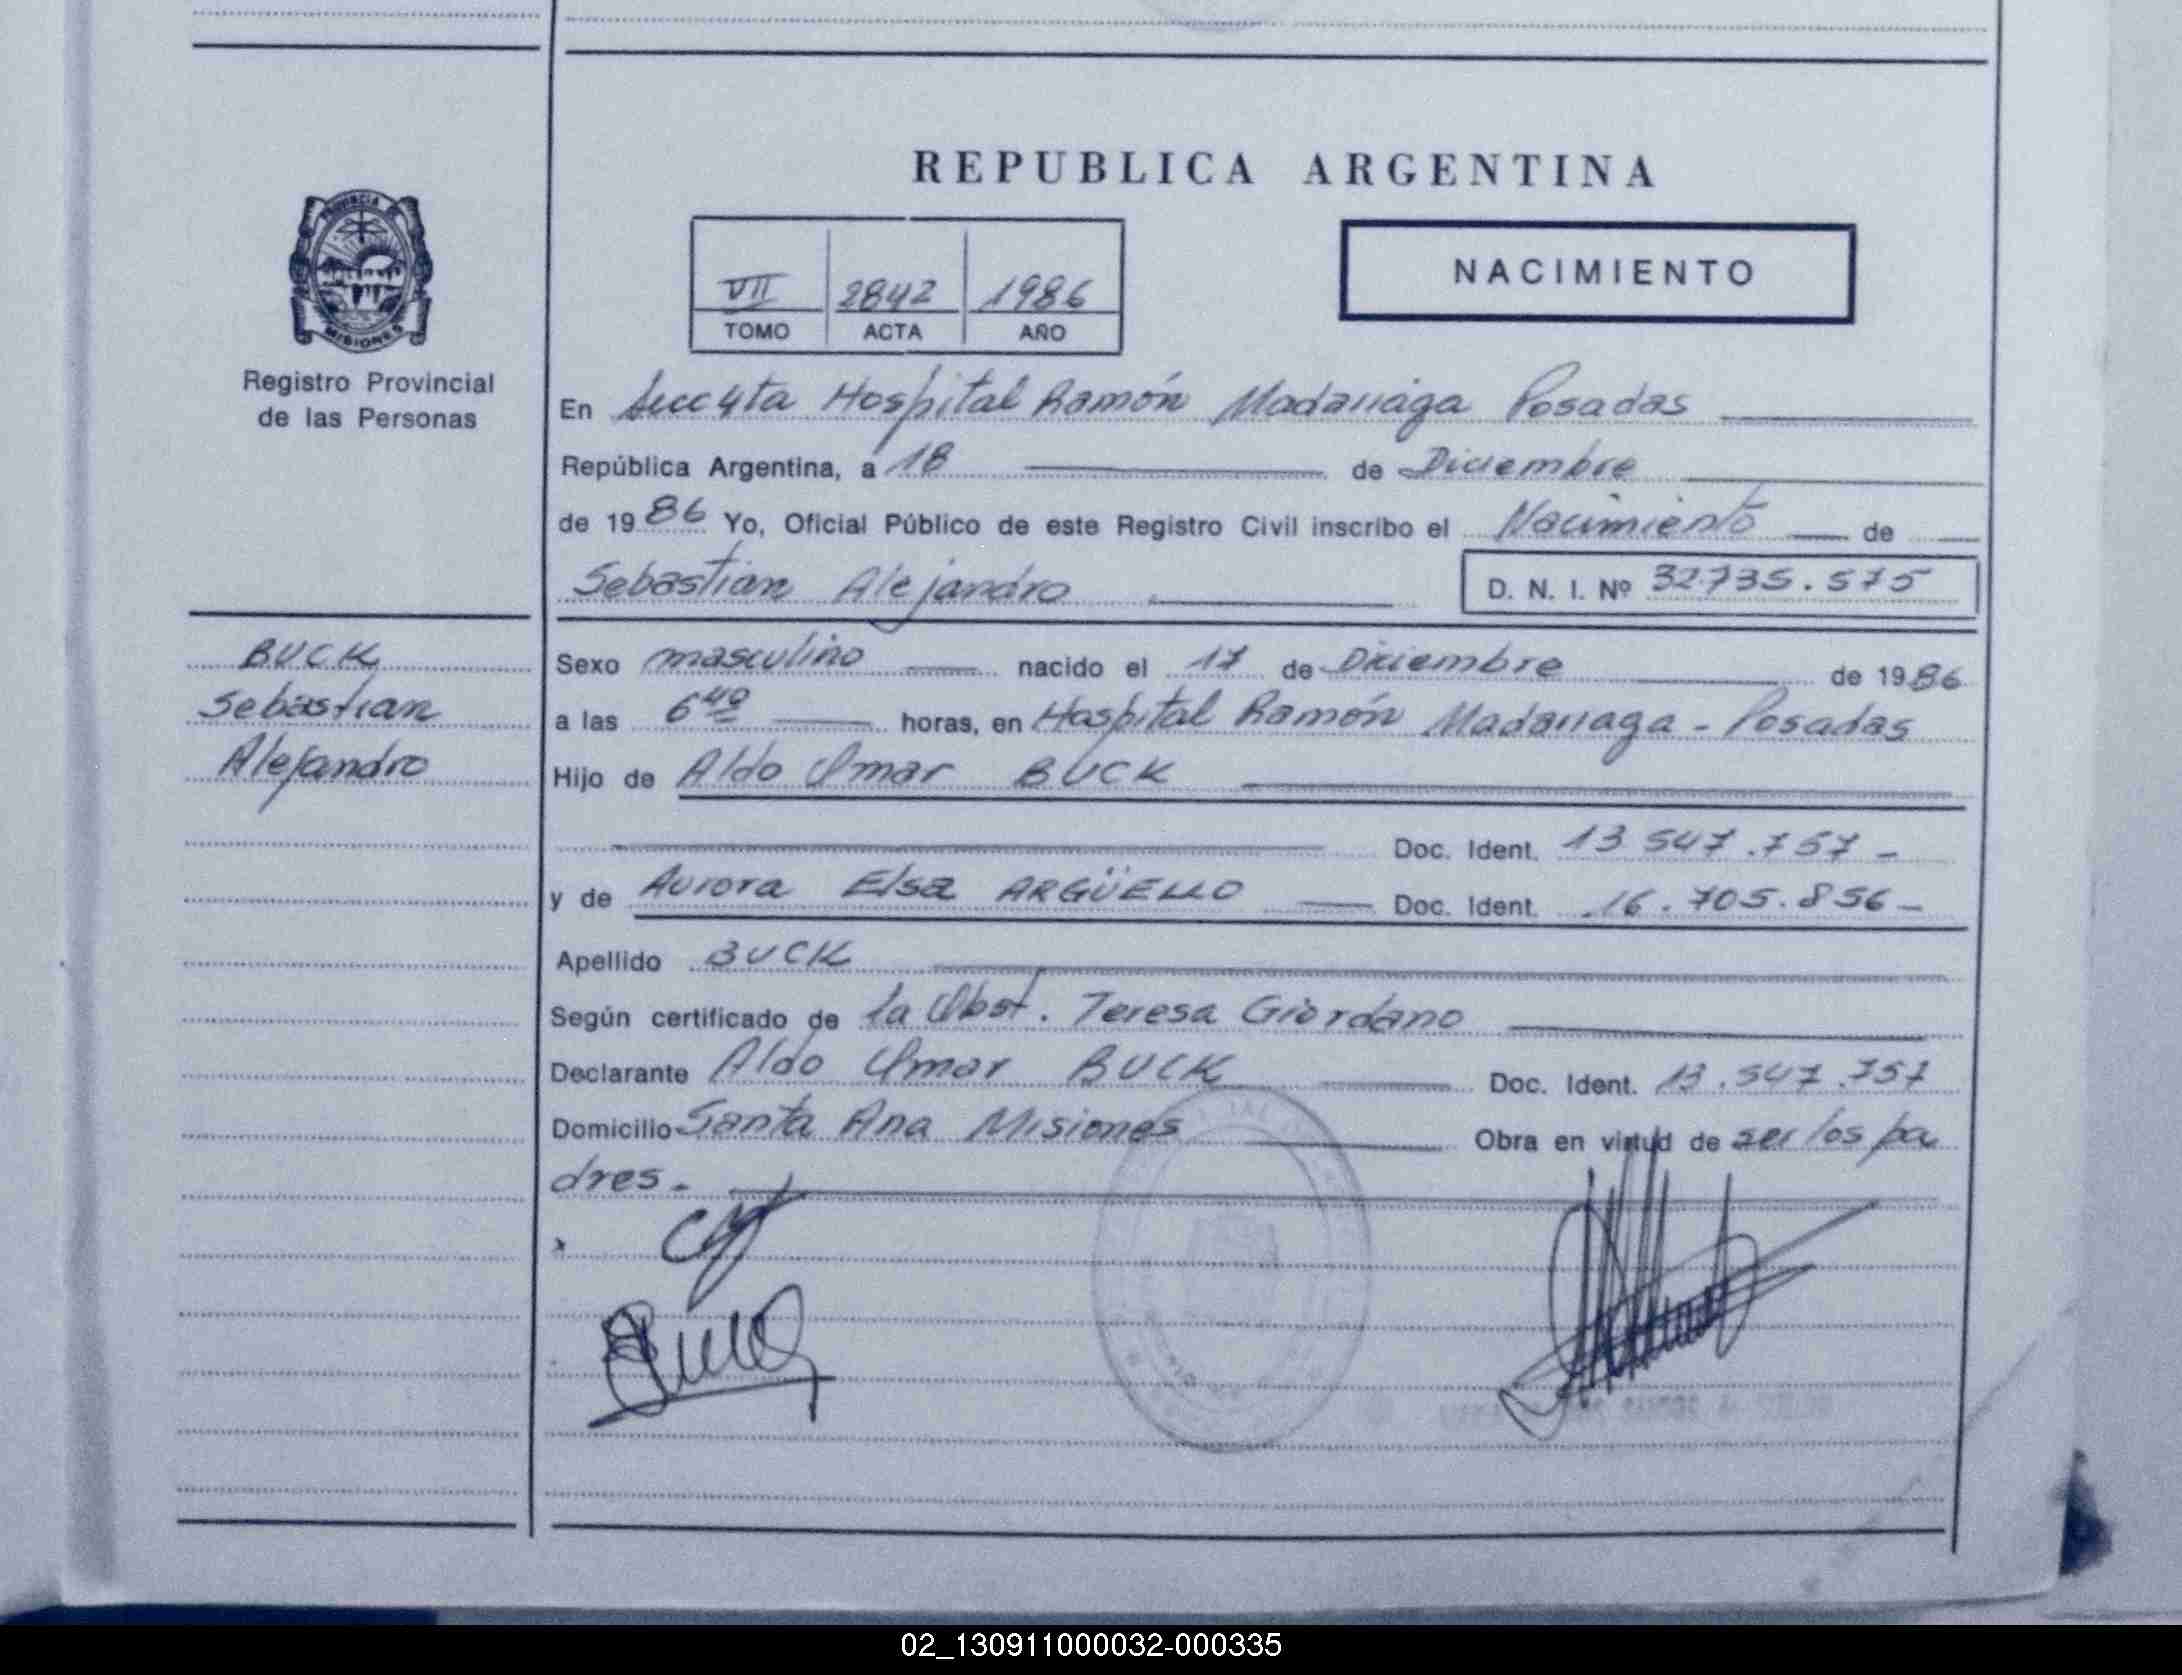 REPUBLICA ARGENTINA
PROVINCIA DE
MISIONES
Registro Provincial
de las Personas
VII 2842 1986
TOMO ACTA AÑO
NACIMIENTO
En Secc 4ta Hospital Ramón Madariaga Posadas
República Argentina, a 18 de Diciembre
de 1986 Yo, Oficial Público de este Registro Civil inscribo el Nacimiento de
Sebastian Alejandro D. N. I. Nº 32.735.575
BUCK
Sebastian
Alejandro
Sexo masculino nacido el 17 de Diciembre de 1986
a las 6 40 horas, en Hospital Ramón Madariaga - Posadas
Hijo de Aldo Omar BUCK
Doc. Ident. 13 547.757 -
y de Aurora Elsa ARGÜELLO Doc. Ident. 16.705.856 -
Apellido BUCK
Según certificado de la Obst. Teresa Giordano
Declarante Aldo Omar BUCK Doc. Ident. 13.547.757
Domicilio Santa Ana Misiones Obra en virtud de ser los pa
dres.
02_130911000032-000335